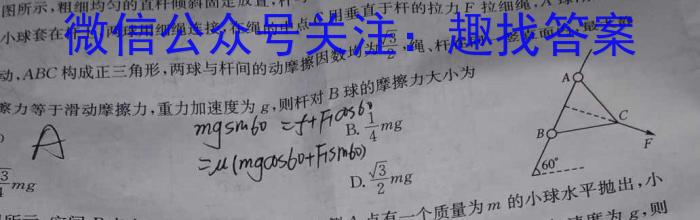 图所示,粗细均匀的直杆倾斜固定放置,杆
微信公众号关注：趣找答案
小球套在杆上,两球用细绳连接,在绳的中点C用垂直于杆的拉力F拉细绳,A球
动,ABC构成正三角形,两球与杆间的动摩擦因数均为√3/2,绳、杆在同一竖直面内,最大
擦力等于滑动摩擦力,重力加速度为g,则杆对B球的摩擦力大小为
A
mgsin60 = f+F₁cos60
=μ(mgcos60+F₁sin60)
B. 1/4 mg
√3/4 mg
D. √3/2 mg
A
B
C
F
60°
A点有一个质量为m的小球水平抛出,小
速度为g,则